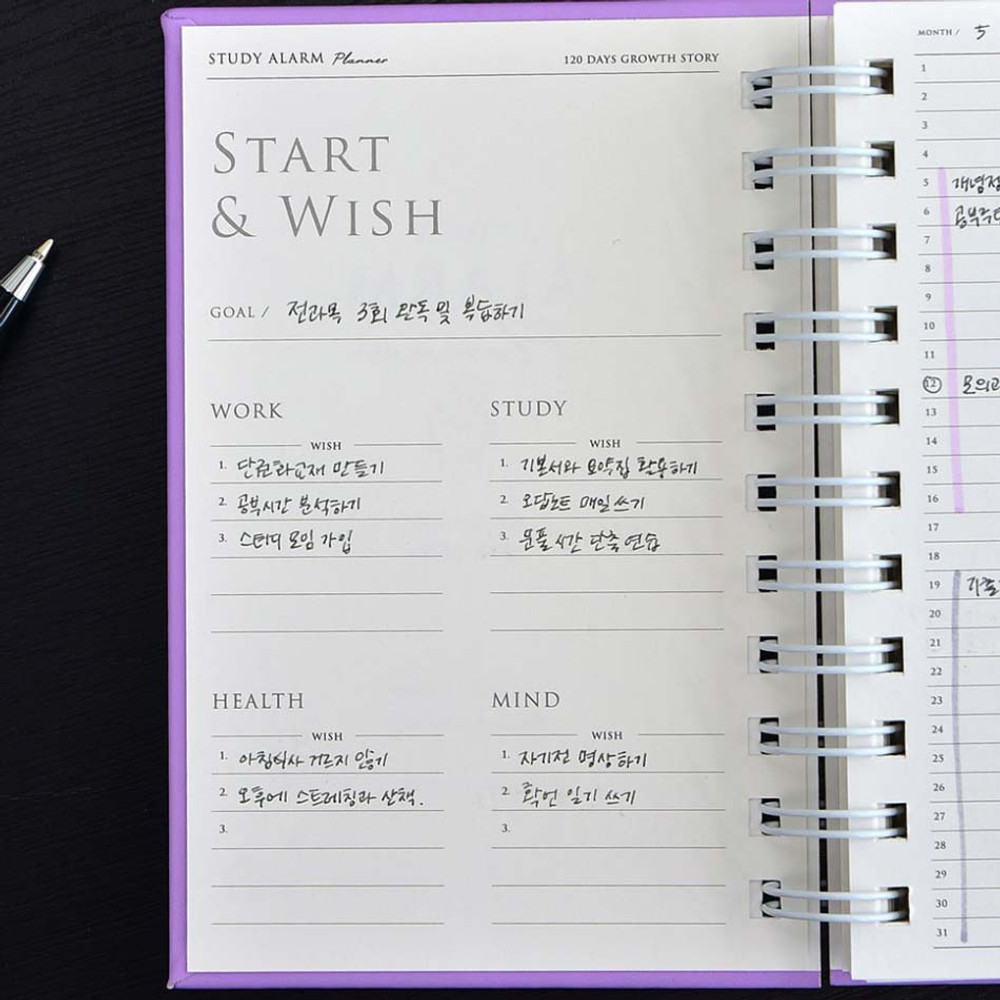 STUDY ALARM Planner
120 DAYS GROWTH STORY
START
& WISH
GOAL / 전과목 3회 완독 및 복습하기
WORK
WISH
1. 단권화교재 만들기
2. 공부시간 분석하기
3. 스터디 모임 가입
STUDY
WISH
1. 기본서와 요약집 활용하기
2. 오답노트 매일 쓰기
3. 문풀시간 단축 연습
HEALTH
WISH
1. 아침식사 거르지 않기
2. 오후에 스트레칭과 산책.
3.
MIND
WISH
1. 자기전 명상하기
2. 확언 일기 쓰기
3.
MONTH / 5
1
2
3
4
5
6
7
8
9
10
11
12
13
14
15
16
17
18
19
20
21
22
23
24
25
26
27
28
29
30
31